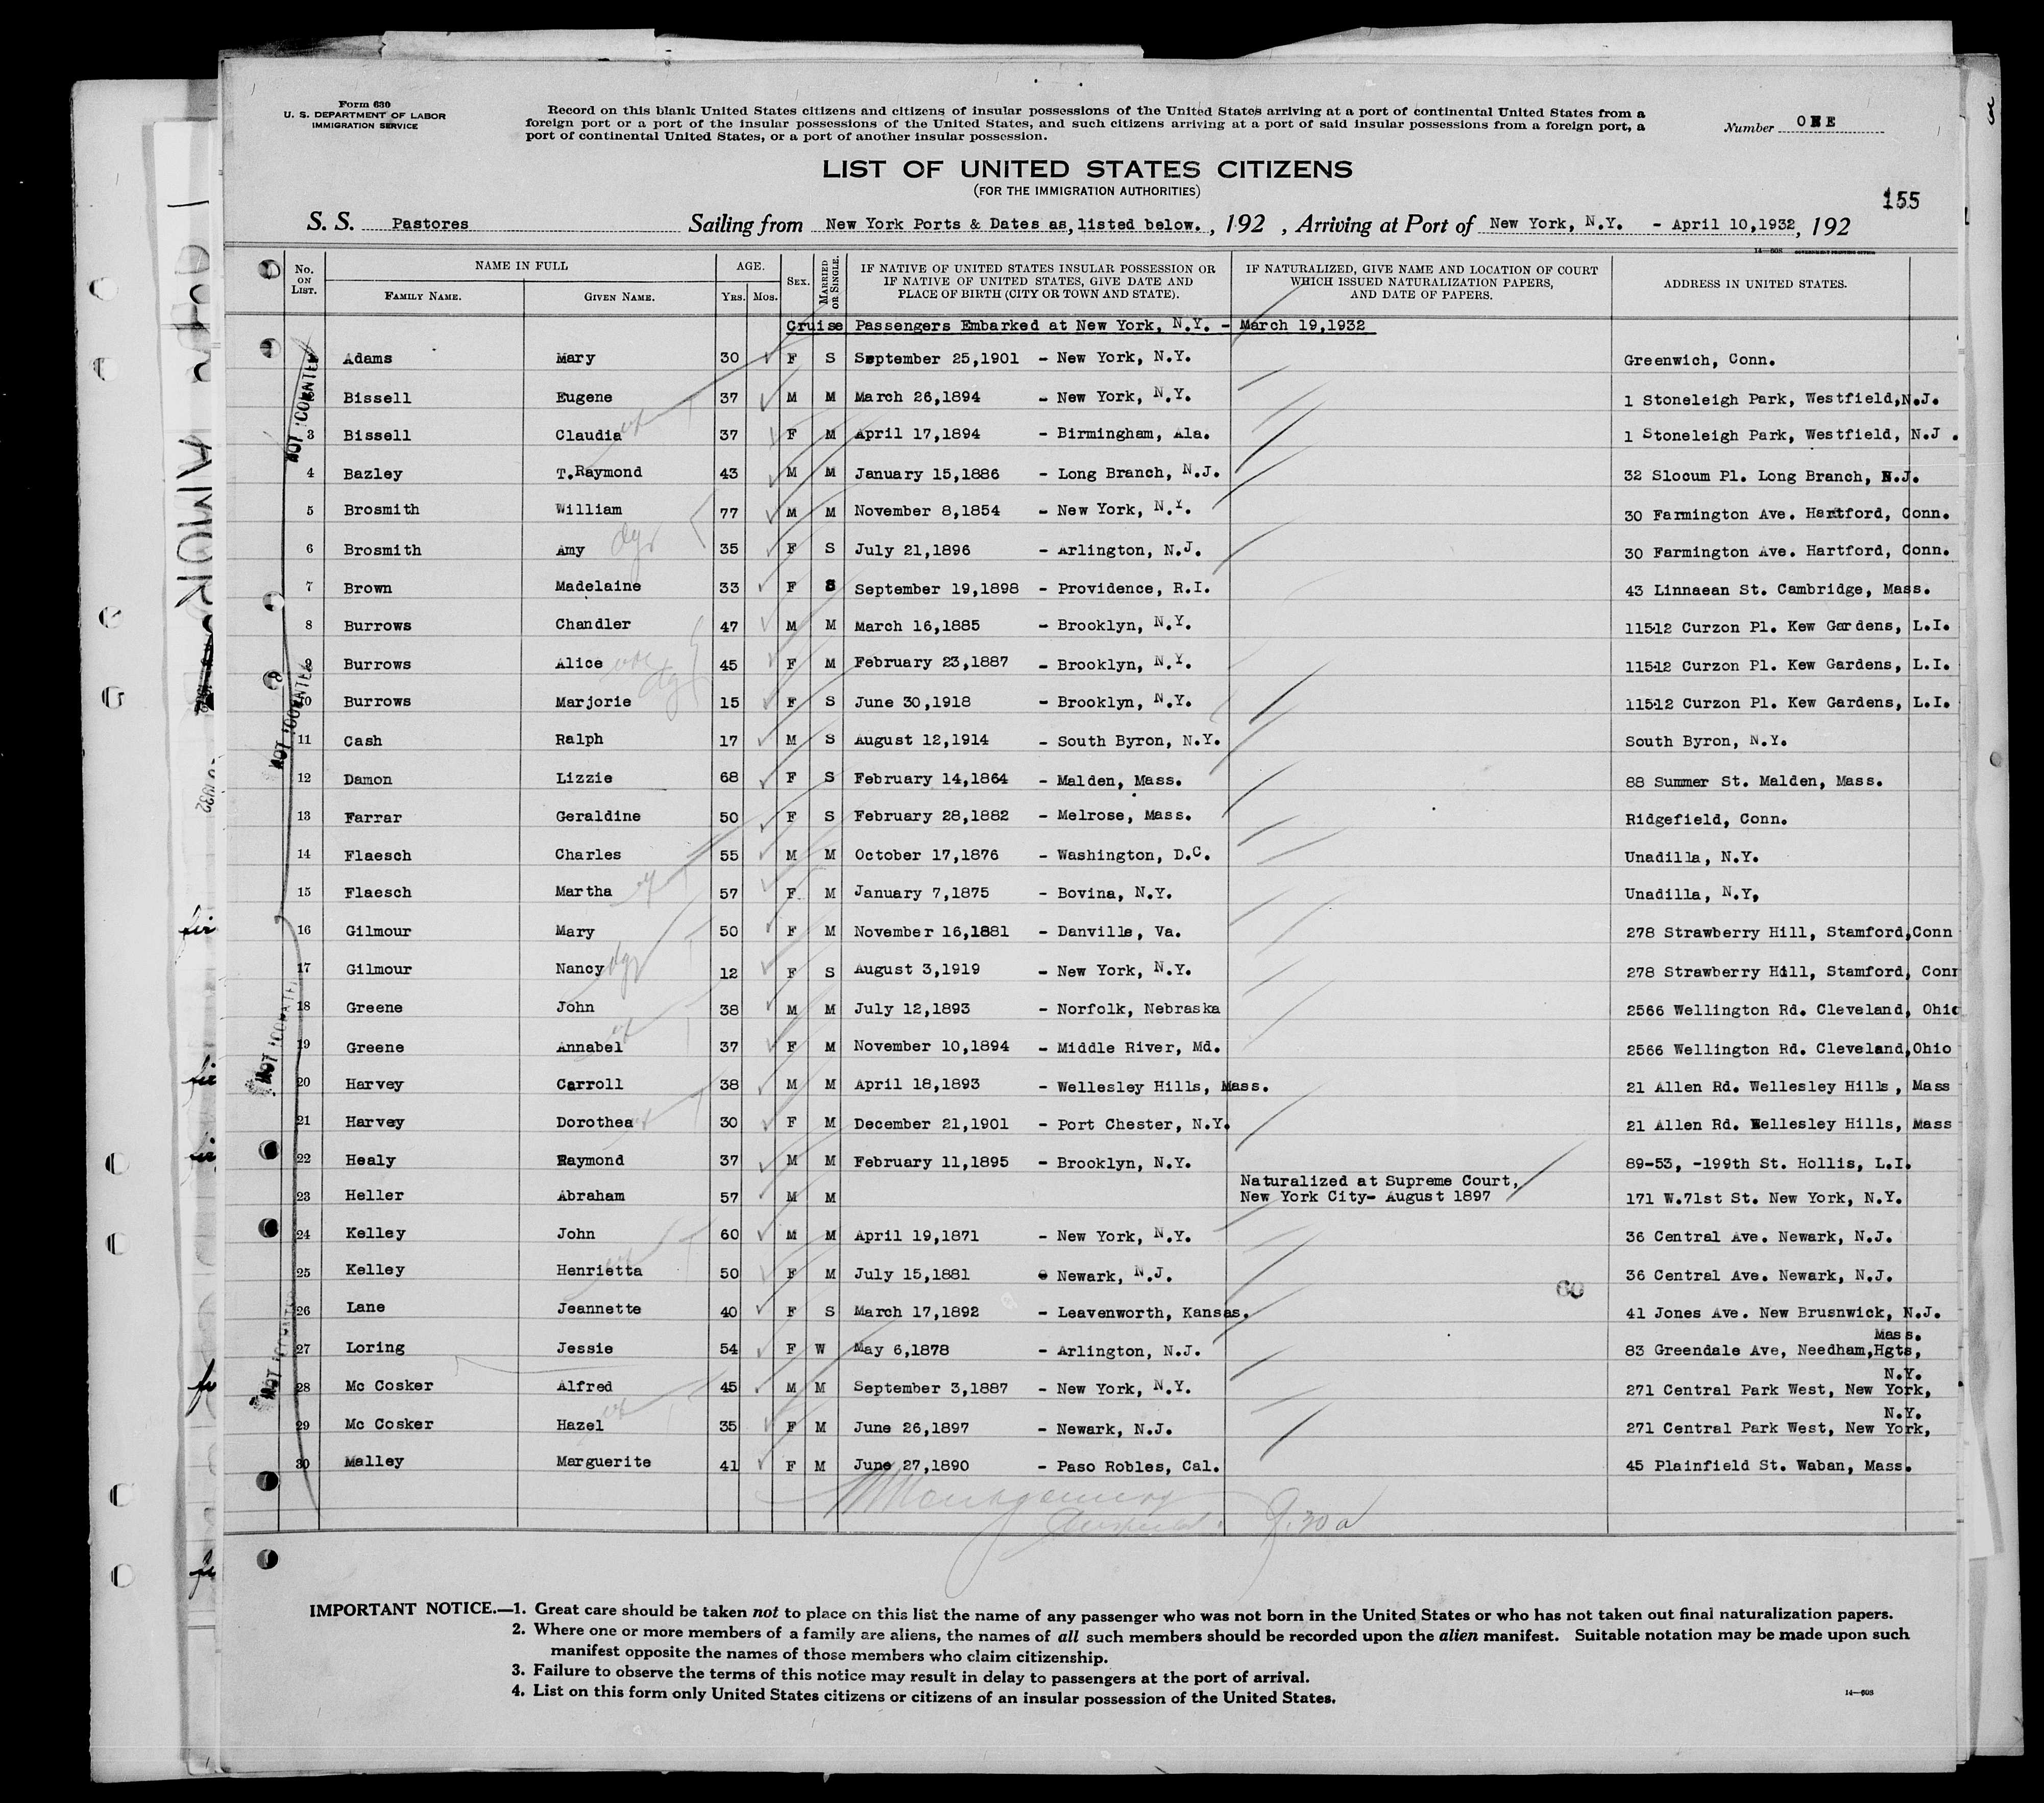 Form 630
U. S. DEPARTMENT OF LABOR
IMMIGRATION SERVICE
Record on this blank United States citizens and citizens of insular possessions of the United States arriving at a port of continental United States from a
foreign port or a port of the insular possessions of the United States, and such citizens arriving at a port of said insular possessions from a foreign port, a
port of continental United States, or a port of another insular possession.
Number ONE
LIST OF UNITED STATES CITIZENS
(FOR THE IMMIGRATION AUTHORITIES)
155
S. S. Pastores Sailing from New York Ports & Dates as, listed below. , 192 , Arriving at Port of New York, N.Y. - April 10,1932, 192
14—608 GOVERNMENT PRINTING OFFICE
No. ON LIST. NAME IN FULL FAMILY NAME. GIVEN NAME. AGE. YRS. MOS. SEX. MARRIED OR SINGLE. IF NATIVE OF UNITED STATES INSULAR POSSESSION OR IF NATIVE OF UNITED STATES, GIVE DATE AND PLACE OF BIRTH (CITY OR TOWN AND STATE). IF NATURALIZED, GIVE NAME AND LOCATION OF COURT WHICH ISSUED NATURALIZATION PAPERS, AND DATE OF PAPERS. ADDRESS IN UNITED STATES.
Cruise Passengers Embarked at New York, N.Y. - March 19,1932
Adams Mary 30 F S September 25,1901 - New York, N.Y. Greenwich, Conn.
Bissell Eugene 37 M M March 26,1894 - New York, N.Y. 1 Stoneleigh Park, Westfield,N.J.
3 Bissell Claudia 37 F M April 17,1894 - Birmingham, Ala. 1 Stoneleigh Park, Westfield, N.J .
4 Bazley T.Raymond 43 M M January 15,1886 - Long Branch, N.J. 32 Slocum Pl. Long Branch, N.J.
5 Brosmith William 77 M M November 8,1854 - New York, N.Y. 30 Farmington Ave. Hartford, Conn.
6 Brosmith Amy 35 F S July 21,1896 - Arlington, N.J. 30 Farmington Ave. Hartford, Conn.
7 Brown Madelaine 33 F S September 19,1898 - Providence, R.I. 43 Linnaean St. Cambridge, Mass.
8 Burrows Chandler 47 M M March 16,1885 - Brooklyn, N.Y. 115-12 Curzon Pl. Kew Gardens, L.I.
9 Burrows Alice 45 F M February 23,1887 - Brooklyn, N.Y. 115-12 Curzon Pl. Kew Gardens, L.I.
10 Burrows Marjorie 15 F S June 30,1918 - Brooklyn, N.Y. 115-12 Curzon Pl. Kew Gardens, L.I.
11 Cash Ralph 17 M S August 12,1914 - South Byron, N.Y. South Byron, N.Y.
12 Damon Lizzie 68 F S February 14,1864 - Malden, Mass. 88 Summer St. Malden, Mass.
13 Farrar Geraldine 50 F S February 28,1882 - Melrose, Mass. Ridgefield, Conn.
14 Flaesch Charles 55 M M October 17,1876 - Washington, D.C. Unadilla, N.Y.
15 Flaesch Martha 57 F M January 7,1875 - Bovina, N.Y. Unadilla, N.Y,
16 Gilmour Mary 50 F M November 16,1881 - Danville, Va. 278 Strawberry Hill, Stamford,Conn
17 Gilmour Nancy 12 F S August 3,1919 - New York, N.Y. 278 Strawberry Hill, Stamford, Conn
18 Greene John 38 M M July 12,1893 - Norfolk, Nebraska 2566 Wellington Rd. Cleveland, Ohio
19 Greene Annabel 37 F M November 10,1894 - Middle River, Md. 2566 Wellington Rd. Cleveland,Ohio
20 Harvey Carroll 38 M M April 18,1893 - Wellesley Hills, Mass. 21 Allen Rd. Wellesley Hills, Mass
21 Harvey Dorothea 30 F M December 21,1901 - Port Chester, N.Y. 21 Allen Rd. Wellesley Hills, Mass
22 Healy Raymond 37 M M February 11,1895 - Brooklyn, N.Y. 89-53, -199th St. Hollis, L.I.
23 Heller Abraham 57 M M Naturalized at Supreme Court, New York City- August 1897 171 W.71st St. New York, N.Y.
24 Kelley John 60 M M April 19,1871 - New York, N.Y. 36 Central Ave. Newark, N.J.
25 Kelley Henrietta 50 F M July 15,1881 Newark, N.J. 36 Central Ave. Newark, N.J.
60
26 Lane Jeannette 40 F S March 17,1892 - Leavenworth, Kansas. 41 Jones Ave. New Brusnwick, N.J.
27 Loring Jessie 54 F W May 6,1878 - Arlington, N.J. 83 Greendale Ave, Needham,Hgts, Mass.
28 Mc Cosker Alfred 45 M M September 3,1887 - New York, N.Y. 271 Central Park West, New York, N.Y.
29 Mc Cosker Hazel 35 F M June 26,1897 - Newark, N.J. 271 Central Park West, New York, N.Y.
30 Malley Marguerite 41 F M June 27,1890 - Paso Robles, Cal. 45 Plainfield St. Waban, Mass.
Montgomery
9.30 a
IMPORTANT NOTICE.—1. Great care should be taken not to place on this list the name of any passenger who was not born in the United States or who has not taken out final naturalization papers.
2. Where one or more members of a family are aliens, the names of all such members should be recorded upon the alien manifest. Suitable notation may be made upon such
manifest opposite the names of those members who claim citizenship.
3. Failure to observe the terms of this notice may result in delay to passengers at the port of arrival.
4. List on this form only United States citizens or citizens of an insular possession of the United States.
14—608